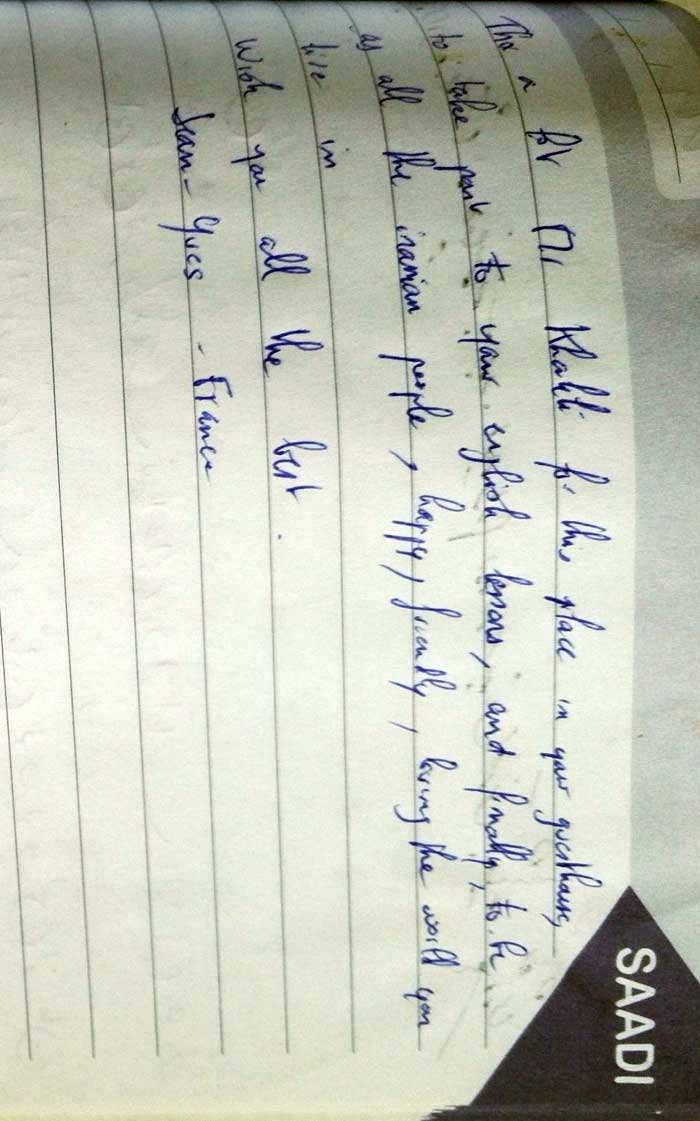 SAADI
Mr Khalili for this place in your guesthouse,
to take part to your english lessons, and finally, to be
as all the iranian people, happy, friendly, loving the world you
live in
Wish you all the best.
Jean-Yves - France